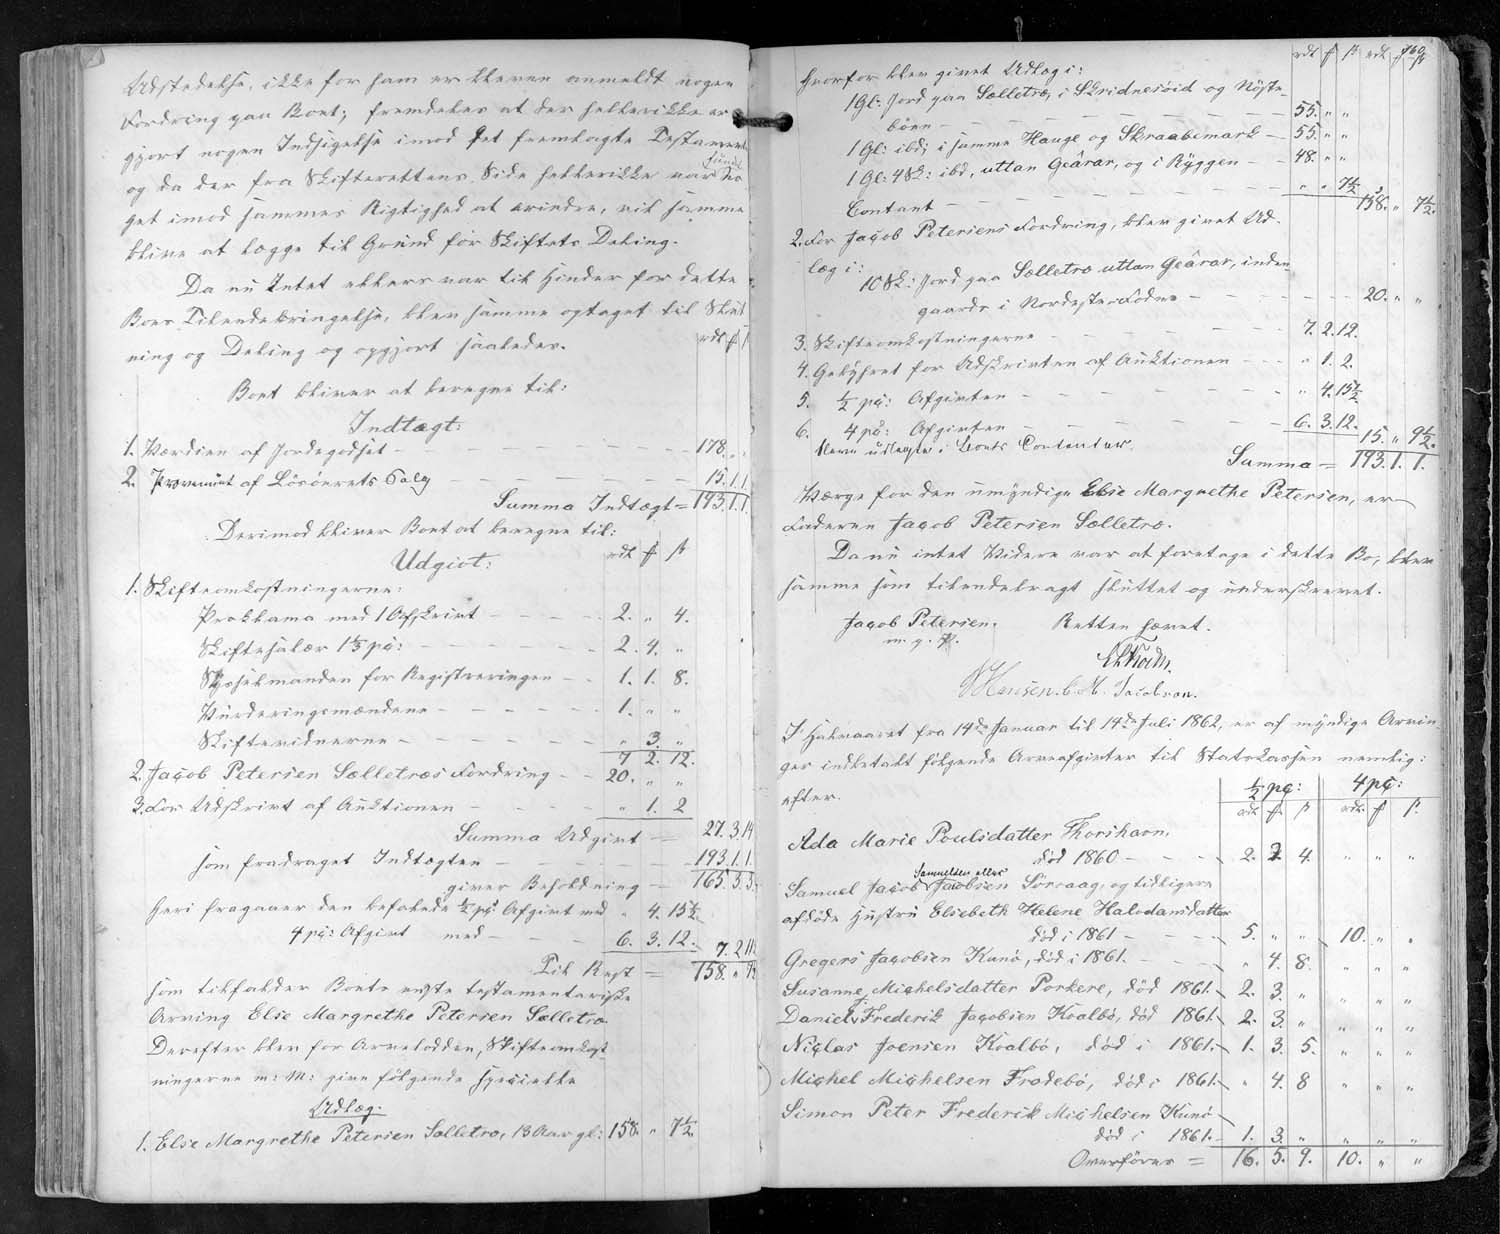 Udstedelse, ikke for ham er bleven anmeldt nogen
Fordring paa Boet; fremdeles at der hellerikke er
gjort nogen Indsigelse imod det fremlagte Testament
og da der fra Skifterettens Side hellerikke var fundet no
get imod sammes Rigtighed at erindre, vil samme
blive at lægge til Grund for Skiftets Deling.
Da nu Intet ellers var til Hinder for dette
Boes Tilendebringelse, blev samme optaget til Slut
ning og Deling og opgjort saaledes.
rdl ƒ
Boet bliver at beregne til:
Indtægt:
1. Værdien af Jordegodset — 178. „ „
2. Provenuet af Lösöerets Salg — 15.1.1
Summa Indtægt = 193.1.1.
Derimod bliver Boet at beregne til:
Udgivt: rdl ƒ β
1. Skifteomkostningerne:
Proklama med 1 Afskrivt — 2. „ 4.
Skiftesalær 1½ pç: — 2. 4. „
Sysselmanden for Registreringen — 1. 1. 8.
Vurderingsmændene — 1. „ „
Skiftevidnerne — „ 3. „
7 2. 12.
2. Jacob Petersen Sælletræs Fordring — 20. „ „
3. For Udskrivt af Auktionen — „ 1. 2
Summa Udgivt — 27. 3.14
som fradraget Indtægten — 193.1.1.
giver Beholdning — 165.3.3.
Heri fragaaer den befalede ½ pç Afgivt med „ 4. 15½
4 pç: Afgivt med — 6. 3. 12. 7. 2 11½
Til Rest = 158. „ 7½
som tilfalder Boets eneste testamentariske
Arving Elsie Margrethe Petersen Sælletræ.
Derefter blev for Arvelodden, Skifteomkost
ningerne m: M: give følgende specielle
Udlæg:
1. Elsie Margrethe Petersen Sælletræ, 13 Aar gl: 158. „ 7½
760
rdl ƒ β rdl ƒ β
Hvorfor blev givet Udlæg i:
1 Gl: Jord paa Sælletræ, i Skridnesöid og Nöste
böen — 55. „ „
1 Gl: ibd; i samme Hauge og Skraabemark — 55. „ „
1 Gl: 4 Sk: ibd, uttan Geârar, og i Ryggen — 48. „ „
Contant — „ „ 7½ 158. „ 7½.
2. For Jacob Petersens Fordring, blev givet Ud-
læg i:
10 Sk: Jord paa Sælletræ uttan Geârar, inden
gaards i Nordeste Lodne — 20. „ „
3. Skifteomkostningerne — 7. 2. 12.
4. Gebyhret for Udskrivten af Auktionen — „ 1. 2.
5. ½ pç: Afgivten — „ 4. 15½
6. 4 pç: Afgivten — 6. 3. 12.
bleve udlagte i Boets Contenter. 15. „ 9½.
Summa = 193. 1. 1.
Værge for den umyndige Elsie Margrethe Petersen, er
Faderen Jacob Petersen Sælletræ.
Da nu intet Videre var at foretage i dette Bo, blev
samme som tilendebragt sluttet og underskrevet.
Jacob Petersen. Retten hævet.
m. p. P.
J Hansen. C. M. Jacobsen.
I Halvaaret fra 14de Januar til 14de Juli 1862, er af myndige Arvin-
ger indbetalt følgende Arveafgivter til Statskassen nemlig:
efter. ½ pç: 4 pç:
rdl ƒ β rdl. ƒ β.
Ada Marie Poulsdatter Thorshavn,
död 1860 — 2. 2. 4. „ „ „
Samuel Jacob Samuelsen eller Jacobsen Sörvaag, og tidligere
afdöde Hustru Elsebeth Helene Halvdansdatter
död i 1861 — 5. „ „ 10. „ „
Gregers Jacobsen Kunö, död i 1861. — „ 4. 8. „ „ „
Susanne Michelsdatter Porkere, död 1861. 2. 3. „ „ „ „
Daniel Frederik Jacobsen Kvalbö, död 1861. 2. 3. „ „ „ „
Niclas Joensen Kvalbö, död i 1861. 1. 3. 5. „ „ „
Michel Michelsen Frodebö, död i 1861. „ 4. 8 „ „ „
Simon Peter Frederik Michelsen Kunö
död i 1861. 1. 3. „ „ „ „
Overföres = 16. 5. 9. 10. „ „